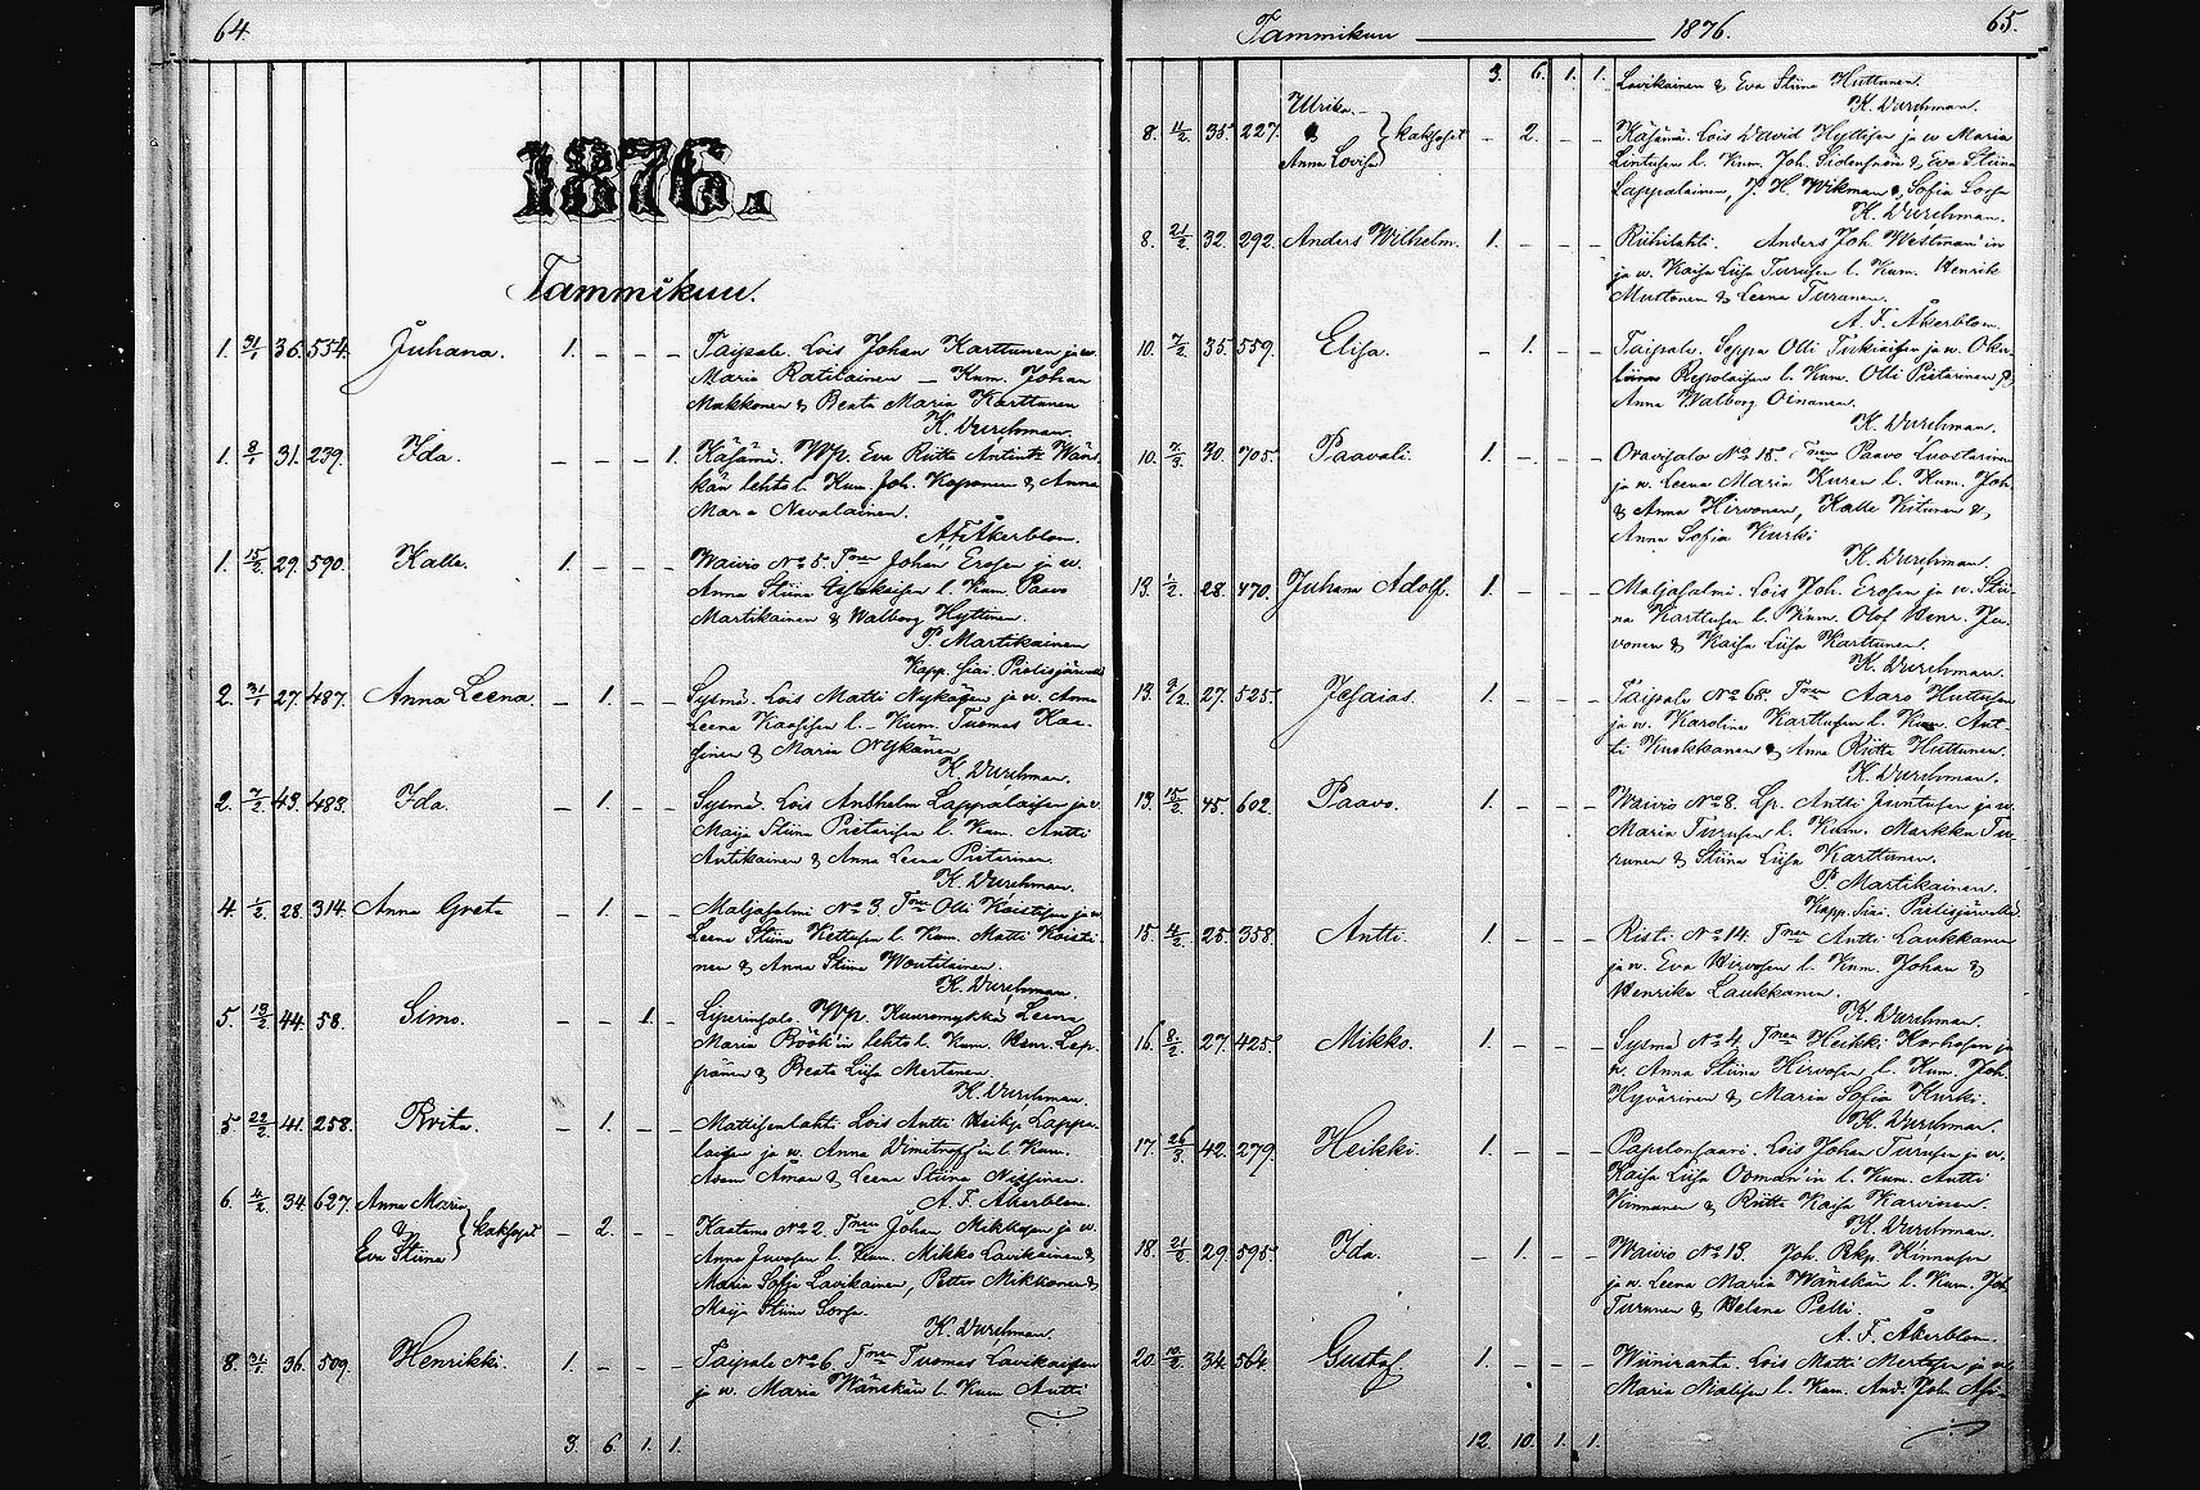 64.
1876.
Tammikuu.
1. 31/1 36. 554. Juhana. 1. – – – Taipale. Lois Johan Karttunen ja w.
Maria Ratilainen – Kum. Johan
Makkonen & Beata Maria Karttunen
K. Durchman.
1. 8/1 31. 239. Ida. – – – 1. Käsämä. Wp. Eva Riitta Antintr Wäns-
kän lehto l. Kum. Joh. Koponen & Anna
Maria Nevalainen.
A. F. Åkerblom.
1. 15/2 29. 590. Kalle. 1. – – – Waivio No 5. Tnen Johan Erosen ja w.
Anna Stiina l. Kum. Paavo
Martikainen & Walborg Hyttinen.
P. Martikainen
Kapp. Siai. Pielisjärvellä
2. 31/1 27. 487. Anna Leena. – 1. – – Sysmä. Lois Matti Nykäsen ja w. Anna
Leena Kaasisen l. – Kum. Tuomas Kaa-
sinen & Maria Nykänen
K. Durchman.
2. 7/2 43. 483. Ida. – 1. – – Sysmä. Lois Anshelm Lappalaisen ja w.
Maija Stiina Pietarisen l. Kum. Antti
Antikainen & Anna Leena Pietarinen.
K. Durchman.
4. 1/2 28. 314. Anna Greta – 1. – – Maljasalmi No 3. Tnen Olli Koistisen ja w.
Leena Stiina Kettusen l. Kum. Matti Koisti-
nen & Anna Stiina Woutilainen.
K. Durchman.
5. 13/2 44. 58. Simo. – – 1. – Liperinsalo. Wp. Kuuromykkä Leena
Maria Böök'in lehto l. Kum. Henr. Lep-
pänen & Beata Liisa Mertanen.
K. Durchman.
5. 22/2 41. 258. Rvita. – 1. – – Mattisenlahti. Lois Antti Heikp. Lappa-
laisen ja w. Anna Dimitroff'in l. Kum.
Adam Åman & Leena Stiina Nissinen.
A. F. Åkerblom.
6. 4/2 34. 627. Anna Maria
& kaksoset – 2. – – Kaatamo No 2. Tnen Johan Mikkosen ja w.
Eva Stiina Anna Juvosen l. Kum. Mikko Lavikainen &
Maria Sofia Lavikainen, Petter Mikkonen &
Maija Stiina Sorsa.
K. Durchman.
8. 31/1 36. 509. Henrikki. 1. – – – Taipale No 6. Tnen Tuomas Lavikaisen
ja w. Maria Wänskän l. Kum Antti
3. 6. 1. 1.
Tammikuu 1876. 65.
3. 6. 1. 1. Lavikainen & Eva Stiina Huttunen.
K. Durchman.
Ulrika
8. 11/2 35. 227. & kaksoset – 2. – – Käsämä. Lois David Hyttisen ja w Maria
Anna Lovisa Lintusen l. Kum. Joh. & Eva Stiina
Lappalainen, J. H. Wikman & Sofia Sorsa
K. Durchman.
8. 21/2 32. 292. Anders Wilhelm. 1. – – – Riihilahti. Anders Joh. Westman'in
ja w. Kaisa Liisa Turusen l. Kum. Henrik
Muttonen & Leena Turunen.
A. F. Åkerblom.
10. 7/2 35. 559. Elisa. – 1. – – Taipale. Seppä Olli Turkiaisen ja w. Oku-
liina Repolaisen l. Kum. Olli Pietarinen &
Anna Walborg Oinonen.
K. Durchman.
10. 7/3 30. 705. Paavali. 1. – – – Oravisalo No 15. Tnen Paavo Luostarinen
ja w. Leena Maria Kuren l. Kum. Joh.
& Anna Hirvonen, Kalle Kitunen &
Anna Sofia Kurki
K. Durchman.
13. 1/2 28. 470. Juhana Adolf. 1. – – – Maljasalmi. Lois Joh. Erosen ja w. Stii-
na Karttusen l. Kum. Olof Henr. Ju-
vonen & Kaisa Liisa Karttunen.
K. Durchman.
13. 9/2 27. 525. Jesaias. 1. – – – Taipale No 68. Tnen Aaro Huttusen
ja w. Karolina Karttusen l. Kum. Ant-
ti Kuokkanen & Anna Riitta Huttunen.
K. Durchman.
13. 15/2 45. 602. Paavo. 1. – – – Waivio No 8. Lp. Antti Juntusen ja w.
Maria Turusen l. Kum. Markku Tu-
runen & Stiina Liisa Karttunen.
P. Martikainen.
Kapp. Siai. Pielisjärvellä.
15. 4/2 25. 358. Antti. 1. – – – Risti No 14. Tnen Antti Laukkanen
ja w. Eva Hirvosen l. Kum. Johan &
Henrika Laukkanen.
K. Durchman.
16. 8/2 27. 425. Mikko. 1. – – – Sysmä No 4. Tnen Heikki Korhosen ja
w. Anna Stiina Hirvosen l. Kum. Joh.
Hyvärinen & Maria Sofia Kurki.
K. Durchman.
17. 26/3 42. 279. Heikki. 1. – – – Papelonsaari. Lois Johan Turusen ja w.
Kaisa Liisa Ovman'in l. Kum. Antti
Kinnanen & Riitta Kaisa Karvinen.
K. Durchman.
18. 21/2 29. 595. Ida. – 1. – – Waivio No 13. Joh. Rkp. Kinnusen
ja w. Leena Maria Wänskän l. Kum. Joh.
Turunen & Helena Pelli.
A. F. Åkerblom.
20. 10/2 34. 564. Gustaf. 1. – – – Wiiniranta. Lois Matti Mertasen ja w.
Maria Malisen l. Kum. And. Joh. Asi-
12. 10. 1. 1.